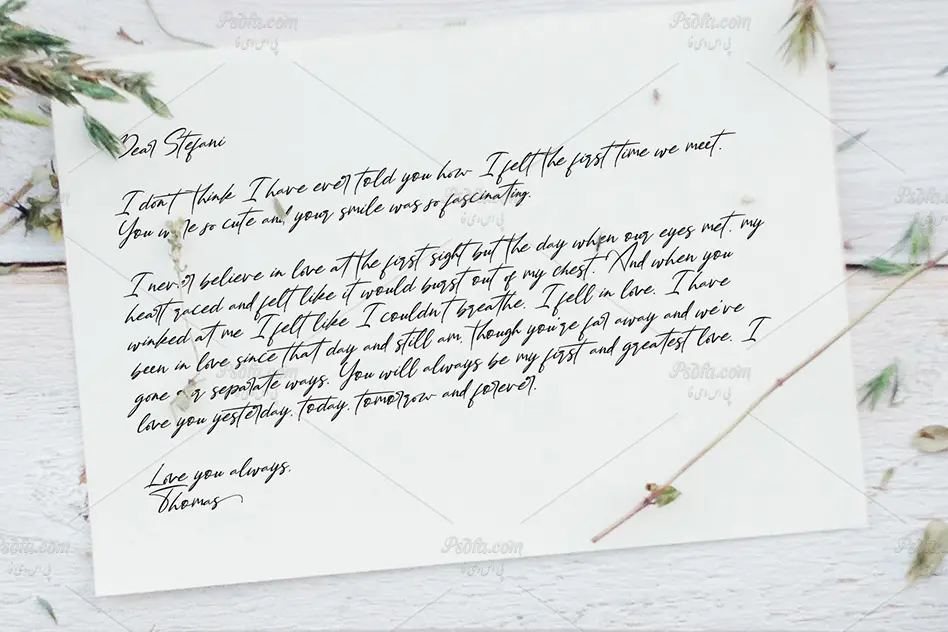 Dear Stefani
I don't think I have ever told you how I felt the first time we meet.
You were so cute and your smile was so fascinating.
I never believe in love at the first sight but the day when our eyes met, my
heart raced and felt like it would burst out of my chest. And when you
winked at me I felt like I couldn't breathe. I fell in love. I have
been in love since that day and still am, though you're far away and we've
gone our separate ways. You will always be my first and greatest love. I
love you yesterday, today, tomorrow and forever.
Love you always,
Thomas
Psdfa.com
Psdfa.com
Psdfa.com
Psdfa.com
Psdfa.com
Psdfa.com
Psdfa.com
Psdfa.com
Psdfa.com
Psdfa.com